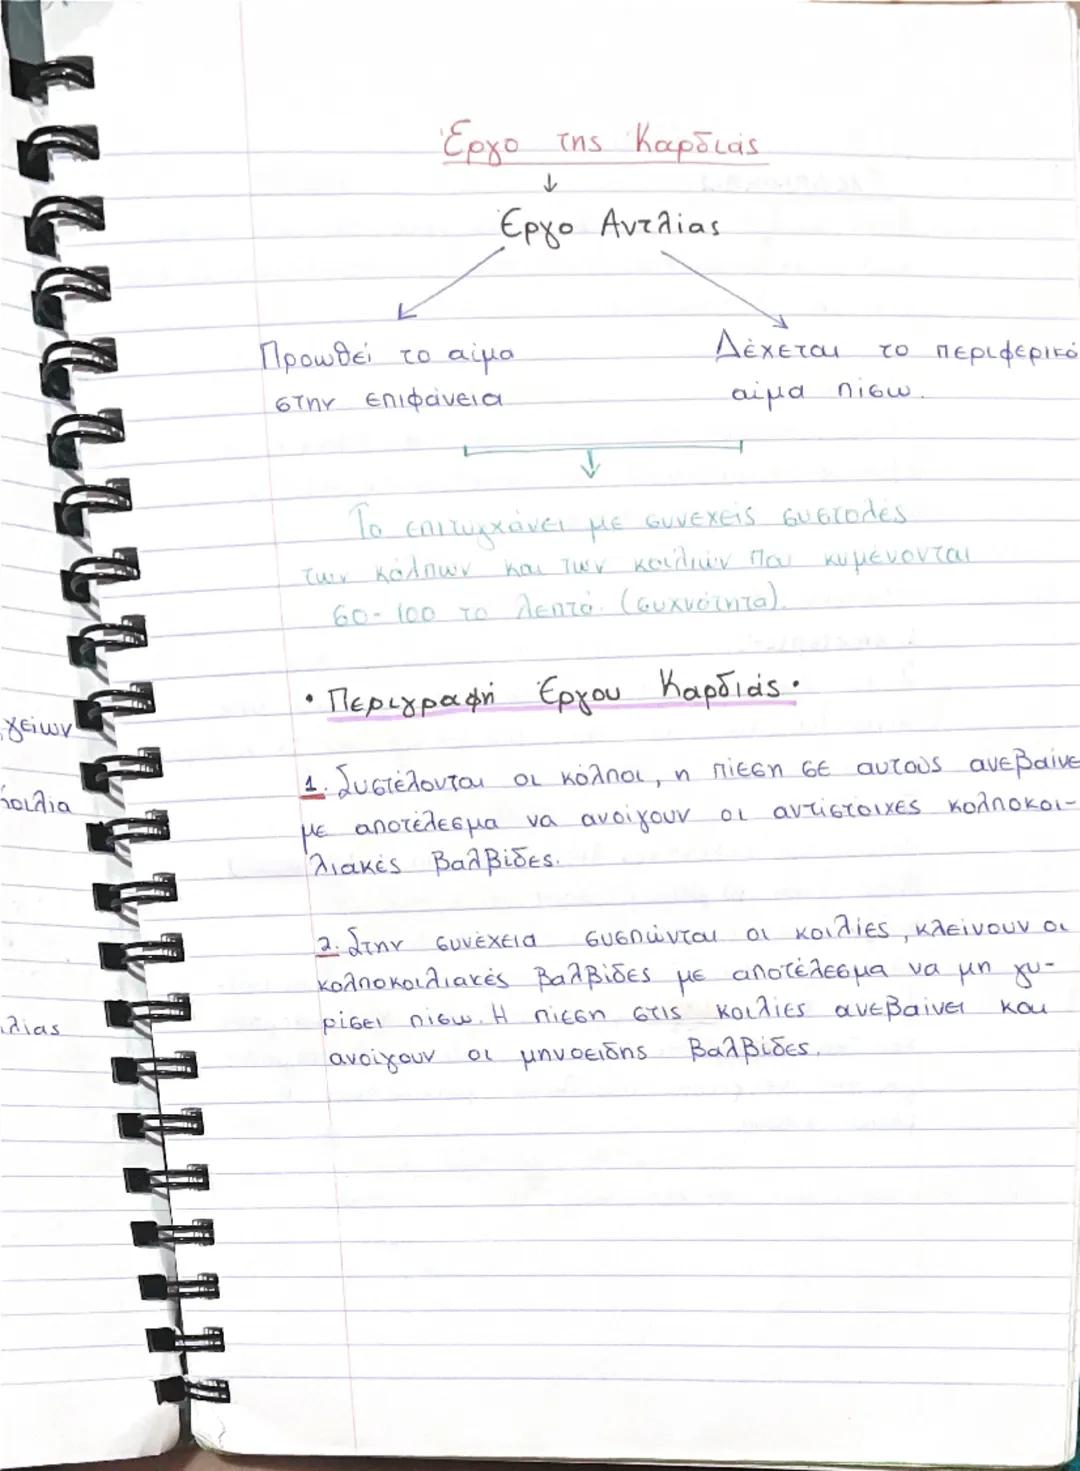 Έργο της Καρδιάς
Έργο Αντλίας
Προωθεί το αίμα
στην επιφάνεια
Δέχεται το περιφερικό
αίμα πίσω.
Το επιτυγχάνει με συνεχείς συστολές
των κόλπων και των κοιλιών που κυμένονται
60-100 το λεπτό. (συχνότητα).
• Περιγραφή Έργου Καρδιάς •
1. Συστέλονται οι κόλποι, η πίεση σε αυτούς ανεβαίνε
με αποτέλεσμα να ανοίγουν οι αντίστοιχες κολποκοι-
λιακές βαλβίδες.
2. Στην συνέχεια συσπώνται οι κοιλίες, κλείνουν οι
κολποκοιλιακές βαλβίδες με αποτέλεσμα να μη γυ-
ρίσει πίσω. Η πίεση στις κοιλίες ανεβαίνει και
ανοίγουν οι μηνοειδής βαλβίδες.
γείων
κοιλία
λίας